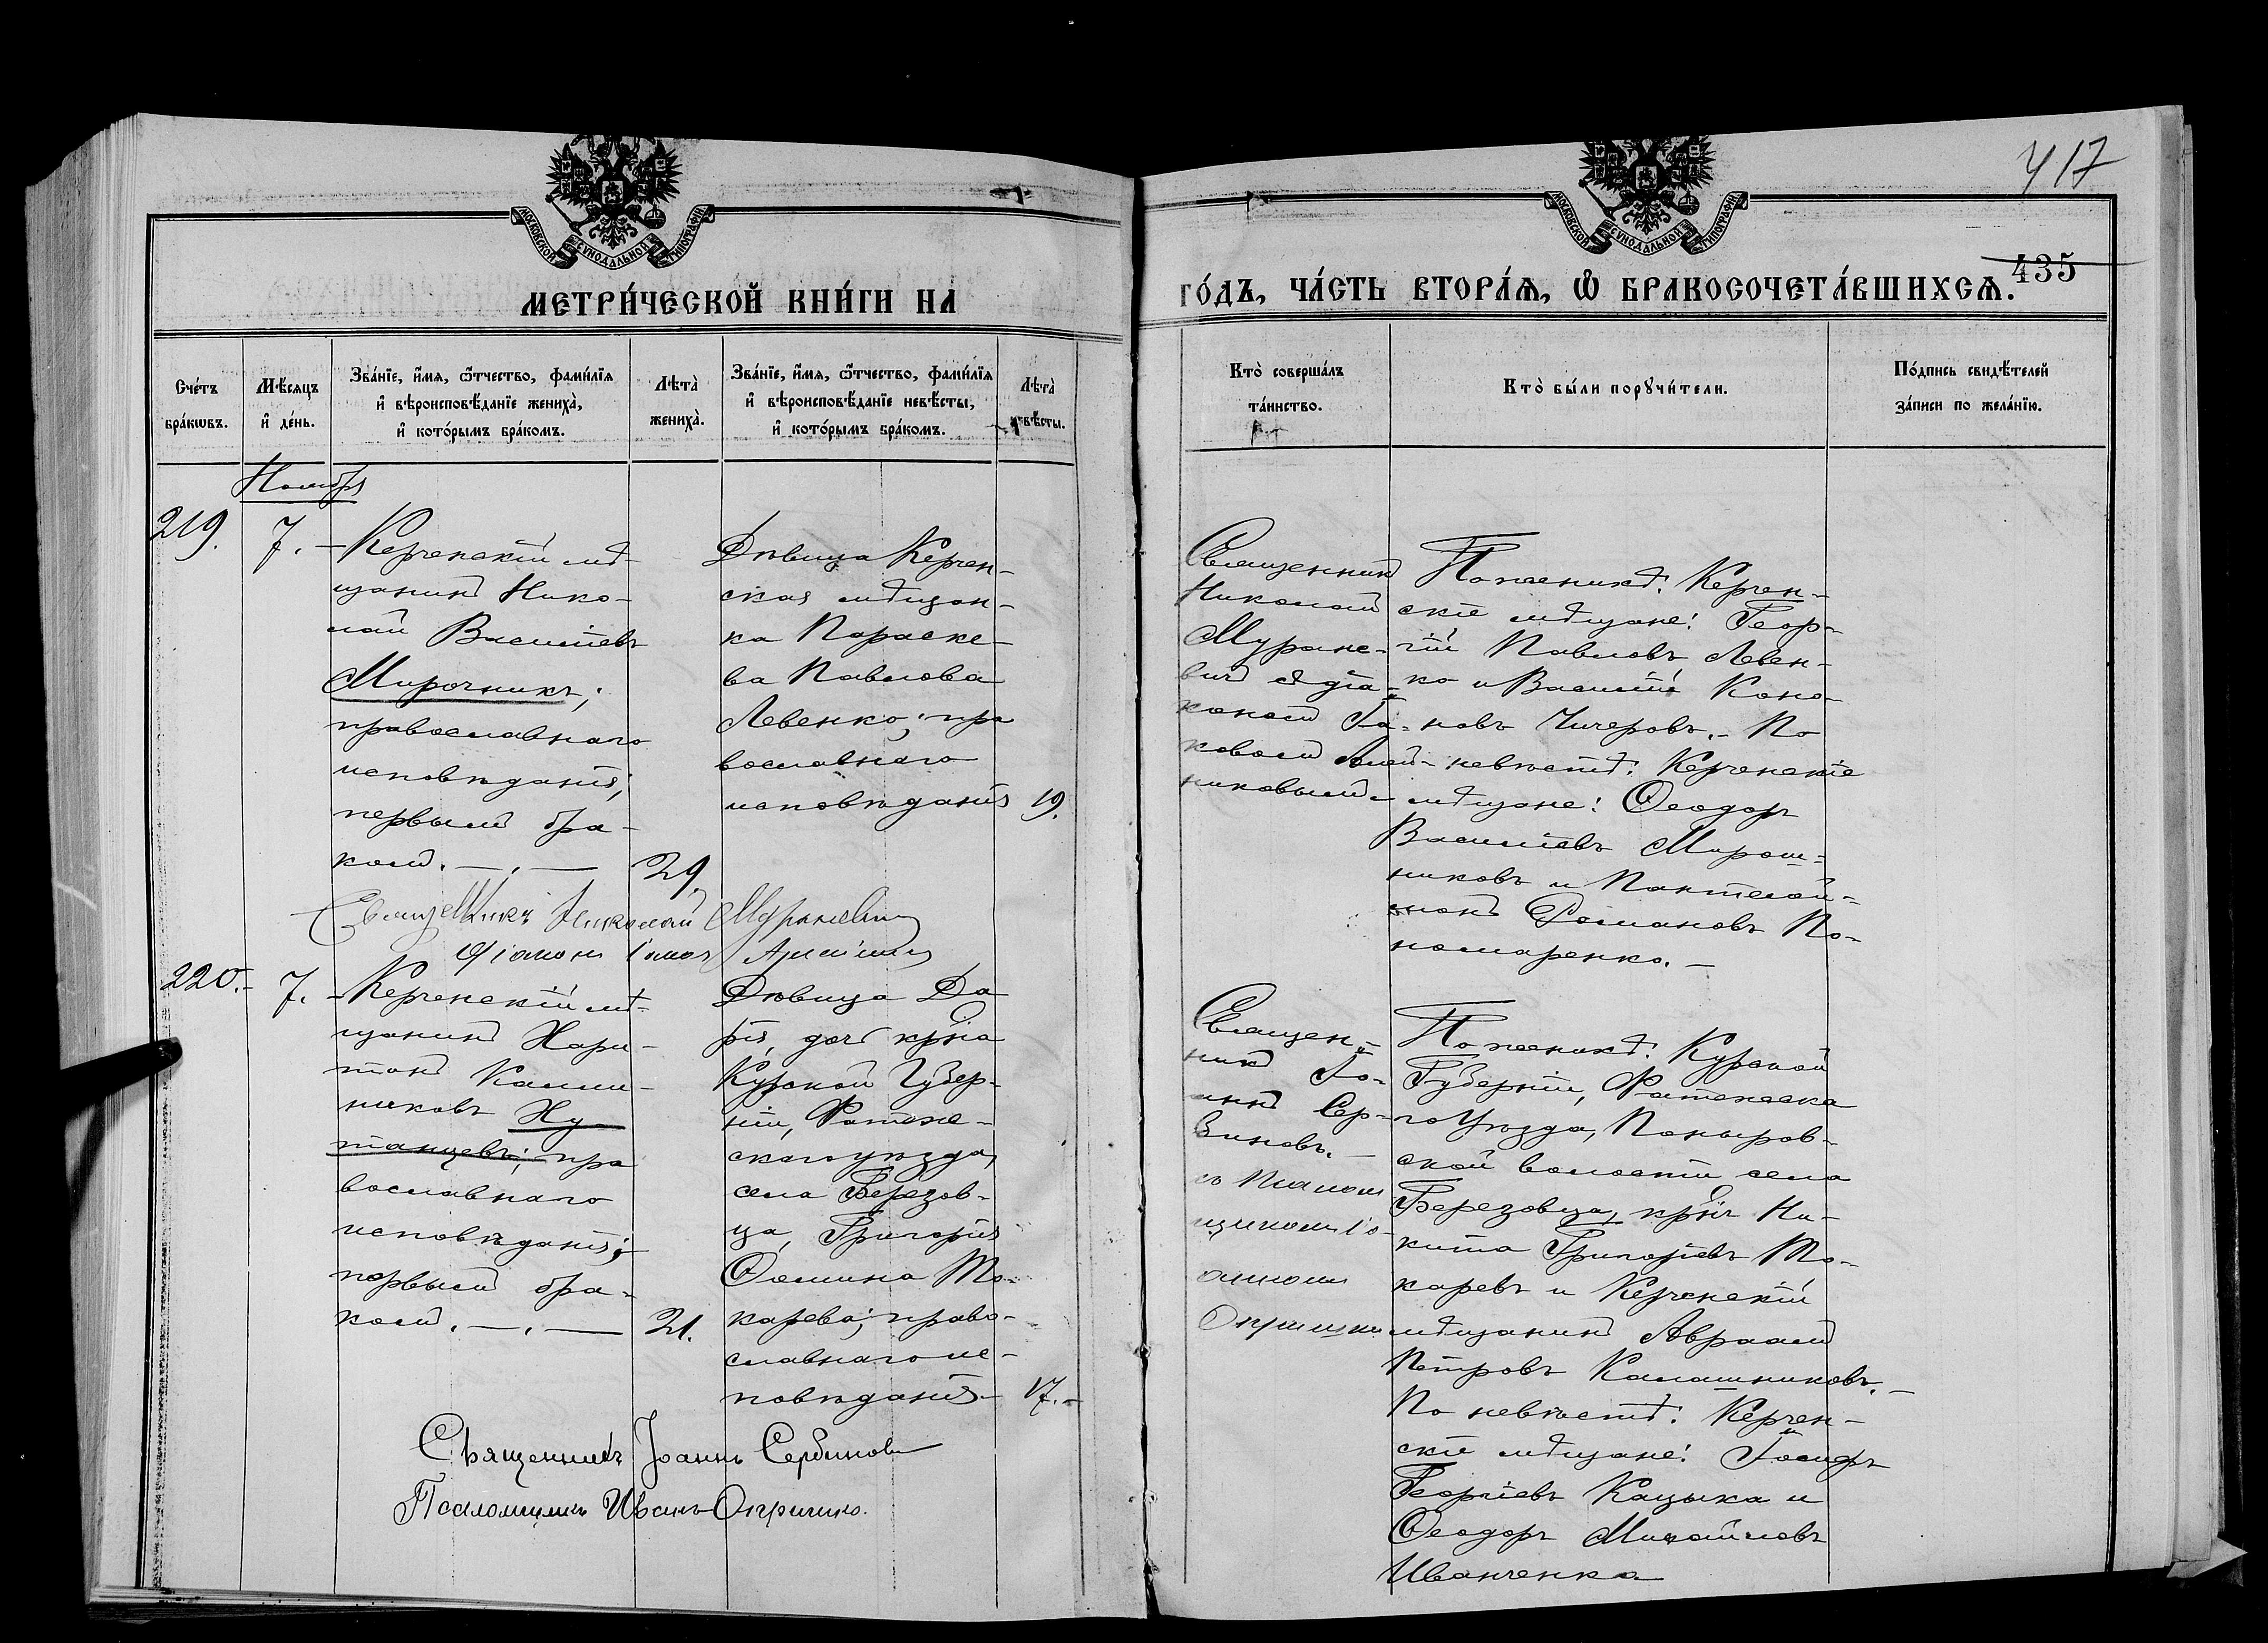 417
435
МОСКОВСКОЙ СѴНОДАЛЬНОЙ ТИПОГРАФІИ
МОСКОВСКОЙ СѴНОДАЛЬНОЙ ТИПОГРАФІИ
МЕТРИ́ЧЕСКОЙ КНИ́ГИ НА
ГО́ДЪ, ЧА́СТЬ ВТОРА́Ѧ, Ѡ҆ БРАКОСОЧЕТА́ВШИХСѦ.
Сче́тъ
бра́кѡвъ.
Мѣ́сяцъ
и҆ де́нь.
Зва́нїе, и҆́мя, ѻ҆́тчество, фами́лїя
и҆ вѣроисповѣ́данїе жениха̀,
и҆ кото́рымъ бра́комъ.
Лѣта̀
жениха̀.
Зва́нїе, и҆́мя, ѻ҆́тчество, фами́лїя
и҆ вѣроисповѣ́данїе невѣ́сты,
и҆ кото́рымъ бра́комъ.
Лѣта̀
невѣ́сты.
Кто̀ соверша́лъ
та́инство.
Кто̀ бы́ли порꙋчи́тели.
По́дпись свидѣ́телей
за́писи по жела́нїю.
Ноябрь
219.
7.
Керченскій мѣ-
щанинъ Нико-
лай Васильевъ
Мирочникъ;
православнаго
исповѣданія;
первымъ бра-
комъ. —
29.
Дѣвица Керчен-
ская мѣщан-
ка Параске-
ва Павлова
Левенко; пра
вославнаго
исповѣданія
19.
Священникъ
Николай
Мураневичъ съ діа-
кономъ Іа-
ковомъ
По женихѣ: Керчен-
скіе мѣщане: Геор-
гій Павловъ Левен-
ко и Василій Коно-
новъ Чичеровъ. - По
невѣстѣ: Керченскіе
мѣщане: Ѳеодоръ
Васильевъ Мирош-
никовъ и Пантелей-
монъ Романовъ По-
номаренко. —
Священникъ Николай Мураневичъ
Діаконъ Іаковъ
220.
7.
Керченскій мѣ-
щанинъ Хари-
тонъ Каллин-
никовъ Ху-
танцевъ; пра
вославнаго
исповѣданія;
первымъ бра-
комъ. —
21.
Дѣвица Да
рія, дочь кр-на
Курской Губер-
ніи, Фатеж-
скаго уѣзда,
села Березов-
ца, Григорія
Ѳомина То-
карева; право-
славнаго ис-
повѣданія
17.
Священ-
никъ Іо-
аннъ Сер-
биновъ.
съ Псалом
щикомъ Іо-
анномъ
По женихѣ: Курской
Губерніи, Фатежска
го Уѣзда, Поныров-
ской волости села
Березовца, кр-нъ Ни-
кита Григорьевъ То-
каревъ и Керченскій
мѣщанинъ Авраамъ
Петровъ Калашниковъ. —
По невѣстѣ: Керчен-
скіе мѣщане: Іосифъ
Георгіевъ Кацыка и
Ѳеодоръ Михайловъ
Иванченко
Священникъ Іоаннъ Сербиновъ
Псаломщикъ Иванъ